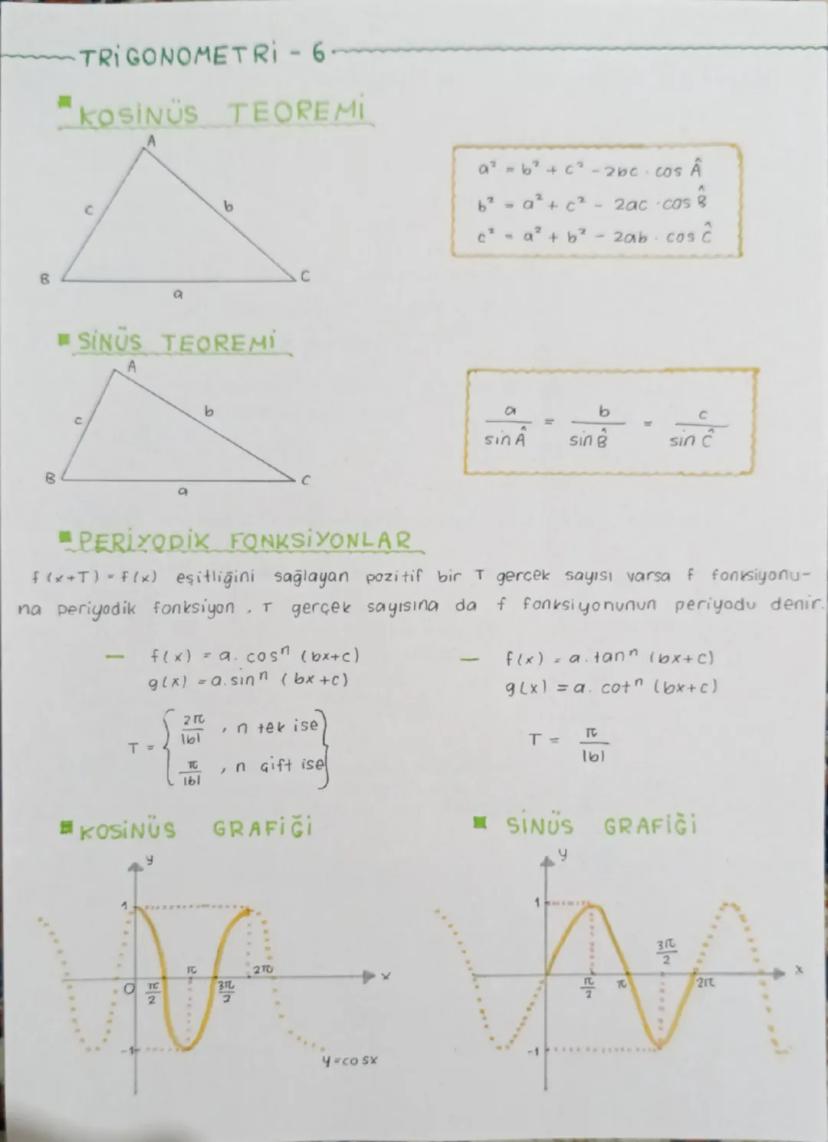 TRİGONOMETRİ - 6
KOSİNÜS TEOREMİ
A
c b
B C
a
a² = b² + c² - 2bc . cos Â
b² = a² + c² - 2ac . cos B̂
c² = a² + b² - 2ab . cos Ĉ
SİNÜS TEOREMİ
A
c b
B C
a
a / sin Â = b / sin B̂ = c / sin Ĉ
PERİYODİK FONKSİYONLAR
f(x+T) = f(x) eşitliğini sağlayan pozitif bir T gerçek sayısı varsa f fonksiyonu-
na periyodik fonksiyon, T gerçek sayısına da f fonksiyonunun periyodu denir.
— f(x) = a. cosⁿ (bx+c)
g(x) = a. sinⁿ (bx+c)
T = { 2π/|b| , n tek ise
π/|b| , n çift ise }
— f(x) = a. tanⁿ (bx+c)
g(x) = a. cotⁿ (bx+c)
T = π/|b|
KOSİNÜS GRAFİĞİ
y
1
O π/2 π 3π/2 2π x
-1
y=cosx
SİNÜS GRAFİĞİ
y
1
π/2 π 3π/2 2π x
-1